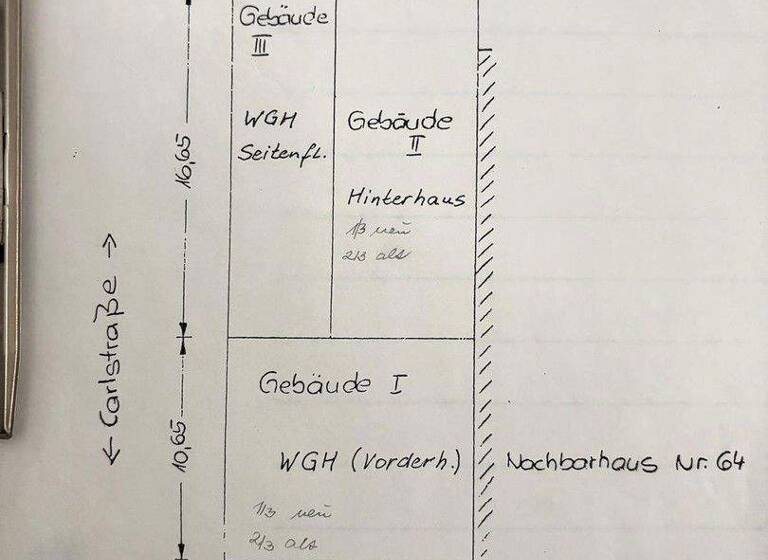 Gebäude
III
WGH
Seitenfl.
Gebäude
II
Hinterhaus
1/3 neu
2/3 alt
16,65
← Carlstraße →
10,65
Gebäude I
WGH (Vorderh.)
1/3 neu
2/3 alt
Nachbarhaus Nr. 64